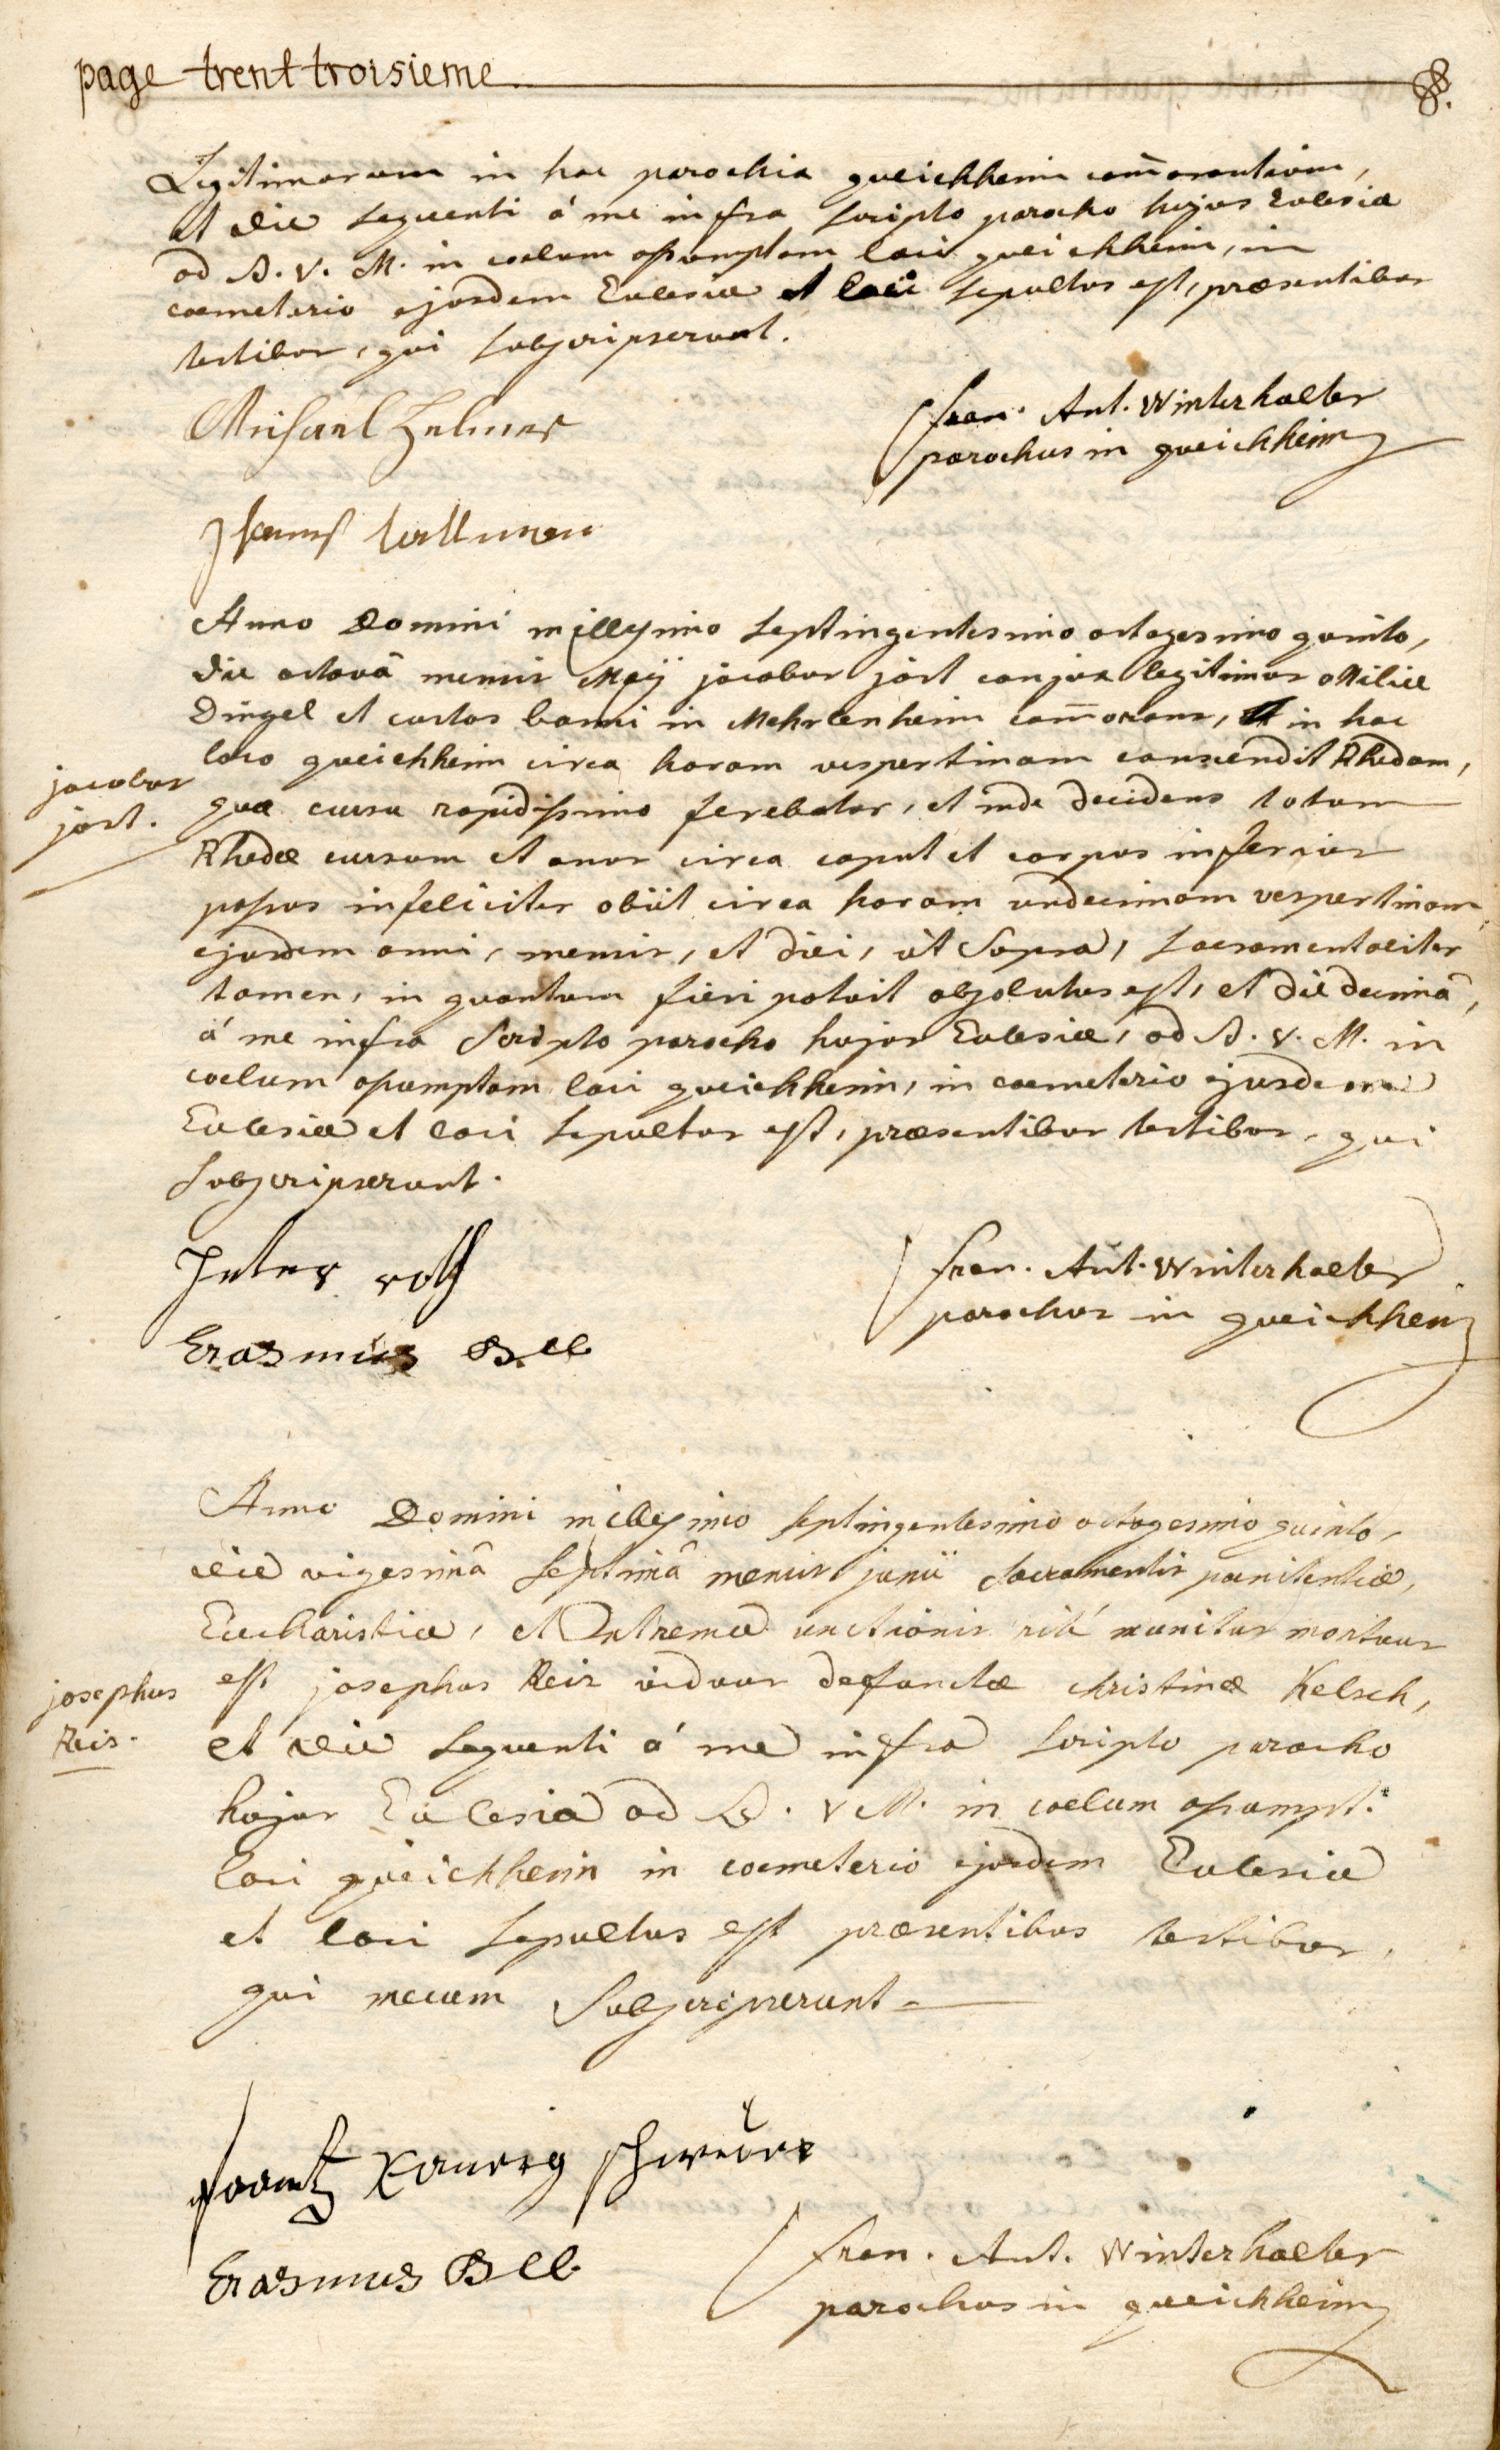 page trent troisieme
Legitimorum in hac parochia queichheim com̄orantium,
et die sequenti á me infra scripto parocho hujus Ecclesiæ
ad B. V. M. in coelum assumptam loci queichheim, in
coemeterio ejusdem Ecclesiæ et loci sepultus est, præsentibus
testibus, qui subscripserunt.
fran. Ant. Winterhalter
parochus in queichheim
Anno Domini millesimo septingentesimo octogesimo quinto,
die octavâ mensis Maÿ jacobus jost conjux legitimus ottiliæ
Dingel et custos banni in Mehrlenheim com̄orans, in hac
loco queichheim circa horam vespertinam conscendit Rhedam,
jacobus
jost.
quæ cursu rapidissimo ferebatur, et inde decidens totum
Rhedæ cursum et onus circa caput et corpus inferius
passus infeliciter obiit circa horam undecimam vespertinam
ejusdem anni, mensis, et diei, ùt supra, sacramentaliter
tamen, in quantum fieri potuit absolutus est, et die decimâ,
á me infra scripto parocho hujus Ecclesiæ, ad B. V. M. in
coelum assumptam loci queichheim, in coemeterio ejusdem
Ecclesiæ et loci sepultus est, præsentibus testibus, qui
subscripserunt.
Peter roth
fran. Ant. Winterhalter
parochus in queichheim
Erasmus Bell
Anno Domini millesimo septingentesimo octogesimo quinto,
die vigesimâ septimâ mensis junii sacramentis pœnitentiæ,
Eucharistiæ, et Extremæ unctionis rité munitus mortuus
est josephus Reis viduus defunctæ christinæ Kelsch,
josephus
Reis.
et die sequenti á me infra scripto parocho
hujus Ecclesiæ ad B. V M. in coelum assumpt.
loci queichheim in coemeterio ejusdem Ecclesiæ
et loci sepultus est præsentibus testibus,
qui mecum subscripserunt.
frantz Xaveri
Erasmus Bell
fran. Ant. Winterhalter
parochus in queichheim